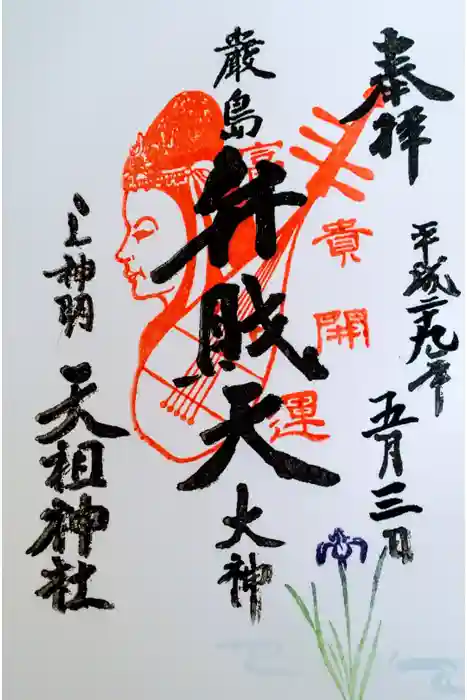 奉拝
平成二十九年
五月三日
厳島
弁財天
大神
富
貴
開
運
上神明
天祖神社